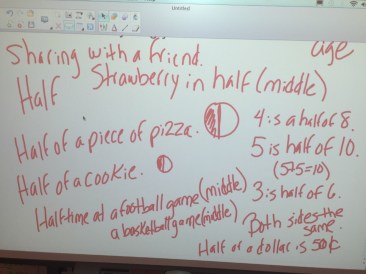 Untitled
Sharing with a friend.
age
Half
Strawberry in half (middle)
Half of a piece of pizza.
4 is a half of 8.
5 is half of 10.
(5+5=10)
Half of a cookie.
3 is half of 6.
Half-time at a football game (middle)
a basketball game (middle)
Both sides the
same.
Half of a dollar is 50¢